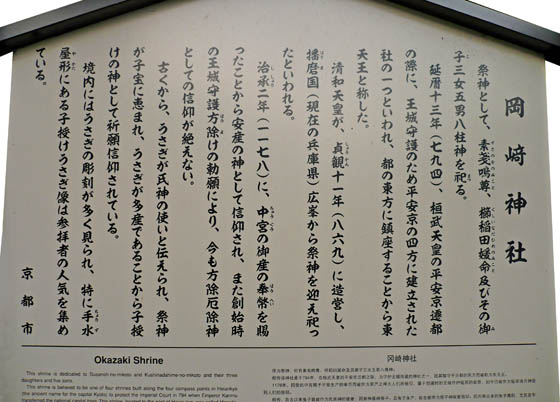 岡﨑神社
祭神として、素戔嗚尊、櫛稲田媛命及びその御
子三女五男八柱神を祀る。
延暦十三年(七九四)、桓武天皇の平安京遷都
の際に、王城守護のため平安京の四方に建立された
社の一つといわれ、都の東方に鎮座することから東
天王と称した。
清和天皇が、貞観十一年(八六九)に造営し、
播磨国(現在の兵庫県)広峯から祭神を迎え祀っ
たといわれる。
治承二年(一一七八)に、中宮の御産の奉幣を賜
ったことから安産の神として信仰され、また創始時
の王城守護方除けの勅願により、今も方除厄除神
としての信仰が絶えない。
古くから、うさぎが氏神の使いと伝えられ、祭神
が子宝に恵まれ、うさぎが多産であることから子授
けの神として祈願信仰されている。
境内にはうさぎの彫刻が多く見られ、特に手水
屋形にある子授けうさぎ像は参拝者の人気を集め
ている。
京都市
Okazaki Shrine
This shrine is dedicated to Susanoh-no-mikoto and Kushinadahime-no-mikoto and their three
daughters and five sons.
This shrine is believed to be one of four shrines built along the four compass points in Heiankyo
(the ancient name for the capital Kyoto) to protect the Imperial Court in 794 when Emperor Kanmu
冈崎神社